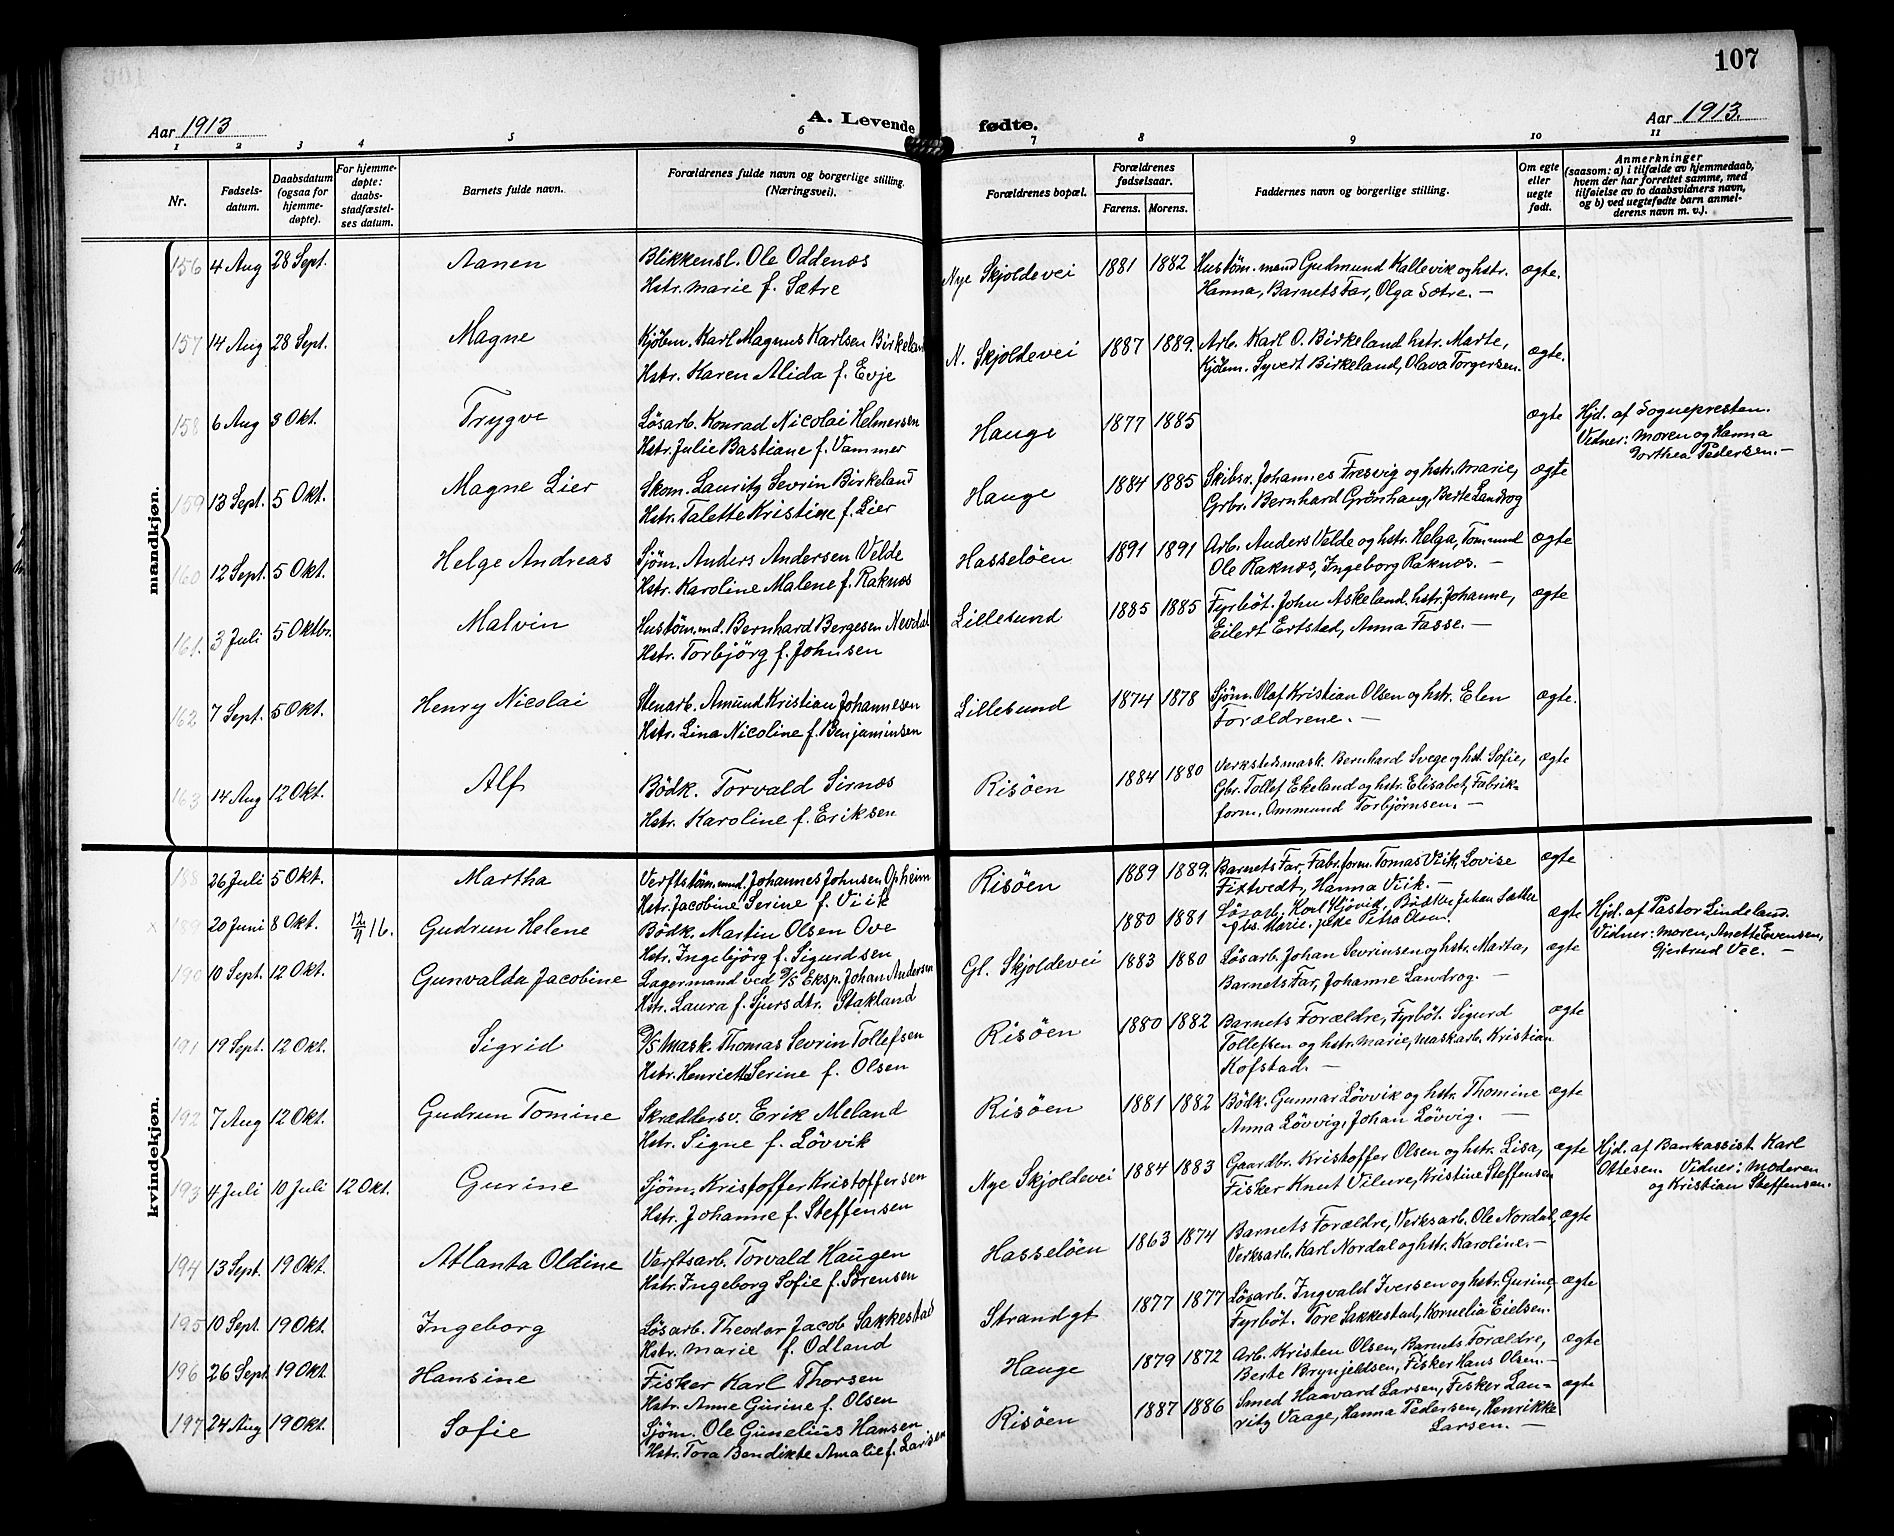 107
Aar 1913
A. Levende fødte.
Aar 1913.
1 2 3 4 5 6 7 8 9 10 11
Nr.
Fødsels-
datum.
Daabsdatum
(ogsaa for
hjemme-
døpte).
For hjemme-
døpte:
daabs-
stadfæstel-
ses datum.
Barnets fulde navn.
Forældrenes fulde navn og borgerlige stilling.
(Næringsvei).
Forældrenes bopæl.
Forældrenes
fødselsaar.
Farens. Morens.
Faddernes navn og borgerlige stilling.
Om egte
eller
uegte
født.
Anmerkninger
(saasom: a) i tilfælde av hjemmedaab,
hvem der har forrettet samme, med
tilføielse av to daabsvidners navn,
og b) ved uegtefødte barn anmel-
derens navn m. v.).
mandkjøn.
156 4 Aug 28 Sept. Aanen Blikkensl. Ole Oddenæs Nye Skjoldevei 1881 1882 Hustøm.mand Gudmund Kallevik og hstr. ægte.
Hstr. Marie f. Sætre Hanna, Barnets Far, Olga Sætre. —
157 14 Aug 28 Sept. Magne Kjöbm. Karl Magnus Karlsen Birkeland N. Skjoldevei 1887 1889. Arb. Karl O. Birkeland hstr. Marte, ægte.
Hstr. Karen Alida f. Evje Kjöbm. Syvert Birkeland, Olava Torgersen.
158 6 Aug 3 Okt. Trygve Løsarb. Konrad Nicolai Helmersen Hauge 1877 1885 ægte Hjd. af Sognepresten.
Hstr. Julie Bastiane f. Vammer Vidner: Moren og Hanna
Dorthea Pedersen. —
159 13 Sept. 5 Okt. Magne Lier Skom. Lauritz Sevrin Birkeland Hauge 1884 1885 Skibsr. Johannes Fresvig og hstr. Marie, ægte
Hstr. Talette Kristine f. Lier Grbr. Bernhard Grönhaug, Berte Landrog
160 12 Sept. 5 Okt. Helge Andreas Sjöm. Anders Andersen Velde Hasselöen 1891 1891 Arb. Anders Velde og hstr. Helga, Tommd ægte
Hstr. Karoline Malene f. Raknæs Ole Raknæs, Ingeborg Raknæs. —
161. 3 Juli 5 Oktbr. Malvin Hustöm.md. Bernhard Bergesen Nevdal Lillesund 1885 1885 Fyrböt. John Askeland, hstr. Johanne, ægte
Hstr. Torbjörg f. Johnsen Eilert Ertstad, Anna Fasse. —
162 7 Sept. 5 Okt. Henry Nicolai Stenarb. Amund Kristian Johannesen Lillesund 1874 1878 Sjöm. Olaf Kristian Olsen og hstr. Elen ægte.
Hstr. Lina Nicoline f. Benjaminsen Forældrene. —
163 14 Aug 12 Okt. Alf Bödk. Torvald Sirnæs Risöen 1884 1880 Verkstedsmask. Bernhard Svege og hst. Sofie, ægte
Hstr. Karoline f. Eriksen Gbr. Tollef Ekeland og hstr. Elisabet, Fabrik-
form. Ommund Torbjörnsen. —
kvindekjøn.
188 26 Juli 5 Okt. Martha Verftstöm.md. Johannes Johnsen Opheim Risöen 1889 1889. Barnets Far, Fabr.form. Tomas Viik, Lovise ægte
Hstr. Jacobine Serine f. Viik Fixtvedt, Hanna Viik. —
189 20 Juni 8 Okt. 12/11 16. Gudrun Helene Bödk. Martin Olsen Ove 1880 1881 Løsarb. Karl Hjövik, Bödker Johan Sætter ægte Hjd. af Pastor Lindeland.
Hstr. Ingebjörg f. Sigurdsen Marie, Petra Olsen. Vidner: Moren, Anette Evensen,
Gjertrud Vee. —
190 10 Sept. 12 Okt. Gunvalda Jacobine Lagermand ved D/S Eksp. Johan Andersen Gl. Skjoldevei 1883 1880 Løsarb. Johan Sevrinsen og hstr. Marta, ægte
Hstr. Laura f. Sjursdtr. Stakland Barnets Far, Johanne Landrog. —
191 19 Sept. 12 Okt. Sigrid D/S Mask. Thomas Sevrin Tollefsen Risöen 1880 1882 Barnets Forældre, Fyrböt. Sigurd ægte
Hstr. Henriette Serine f. Olsen Tollefsen og hstr. Marie, Maskarb. Kristian
Kofstad. —
192 7 Aug 12 Okt. Gudrun Tomine Skræddersv. Erik Meland Risöen 1881 1882 Bödk. Gunnar Lövvik og hstr. Thomine ægte
Hstr. Signe f. Lövvik Anna Lövvig, Johan Lövvig. —
193 4 Juli 10 Juli 12 Okt. Gurine Sjöm. Kristoffer Kristoffersen Nye Skjoldevei 1884 1883 Gaardbr. Kristoffer Olsen og hstr. Lisa, ægte Hjd. af Bankassist. Karl
Hstr. Johanne f. Steffensen Fisker Knut Vilure, Kristine Steffensen Ottesen. Vidner: Moderen
og Kristian Steffensen.
194 13 Sept. 19 Okt. Atlanta Oldine Verftsarb. Torvald Haugen Hasselöen 1863 1874 Barnets Forældre, Verksarb. Ole Nordal, ægte
Hstr. Ingeborg Sofie f. Sörensen Verksarb. Karl Nordal og hstr. Karoline. —
195 10 Sept. 19 Okt. Ingeborg Løsarb. Theodor Jacob Sakkestad Strandgt 1877 1877 Løsarb. Ingvald Iversen og hstr. Gurine, ægte
Hstr. Marie f. Odland Fyrböt. Tore Sakkestad, Kornelia Eielsen.
196 26 Sept 19 Okt. Hansine Fisker Karl Thorsen Hauge 1879 1872 Arb. Kristen Olsen, Barnets Forældre, ægte
Hstr. Anne Gurine f. Olsen Berte Brynjeldsen, Fisker Hans Olsen. —
197 24 Aug 19 Okt. Sofie Sjöm. Ole Gunelius Hansen Risöen 1887 1886 Smed Haavard Larsen, Fisker Lau- ægte
Hstr. Tora Bendikte Amalie f. Larsen ritz Vaage, Hanna Pedersen, Henrikke
Larsen. —